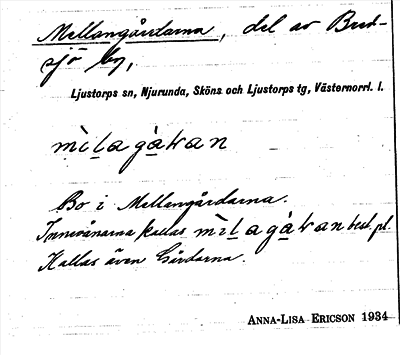 Mellangårdarna, del av Bred-
sjö by,
Ljustorps sn, Njurunda, Sköns och Ljustorps tg, Västernorrl. l.
mìlagàɽan
Bo i Mellangårdarna.
Innevånarna kallas mìlagàɽan best. pl.
Kallas även Gårdarna.
ANNA-LISA ERICSON 1934